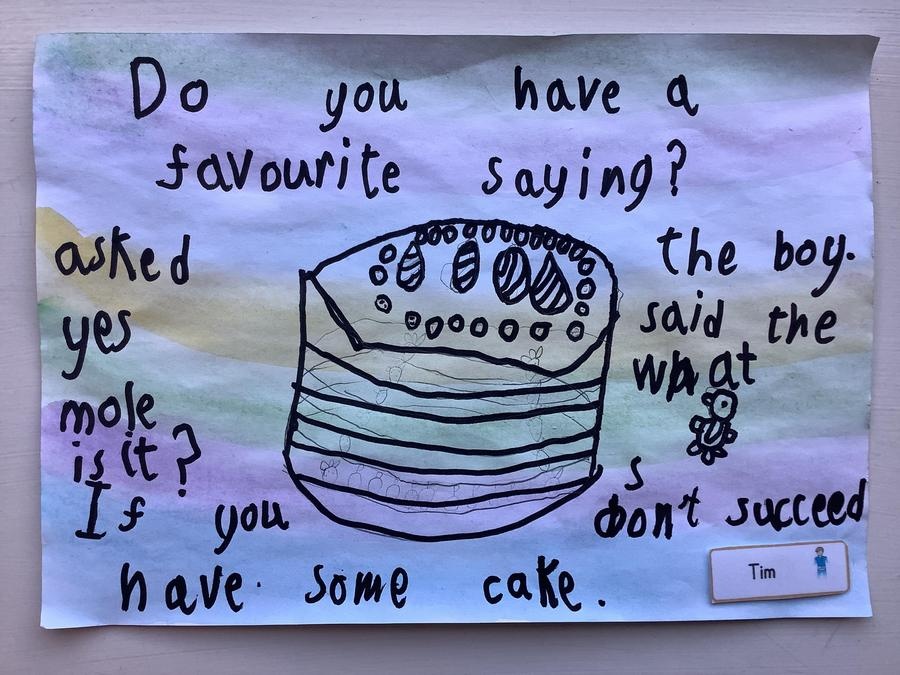 Do you have a
favourite saying?
asked the boy.
yes said the
mole what
is it?
s
If you don't succeed
have some cake.
Tim